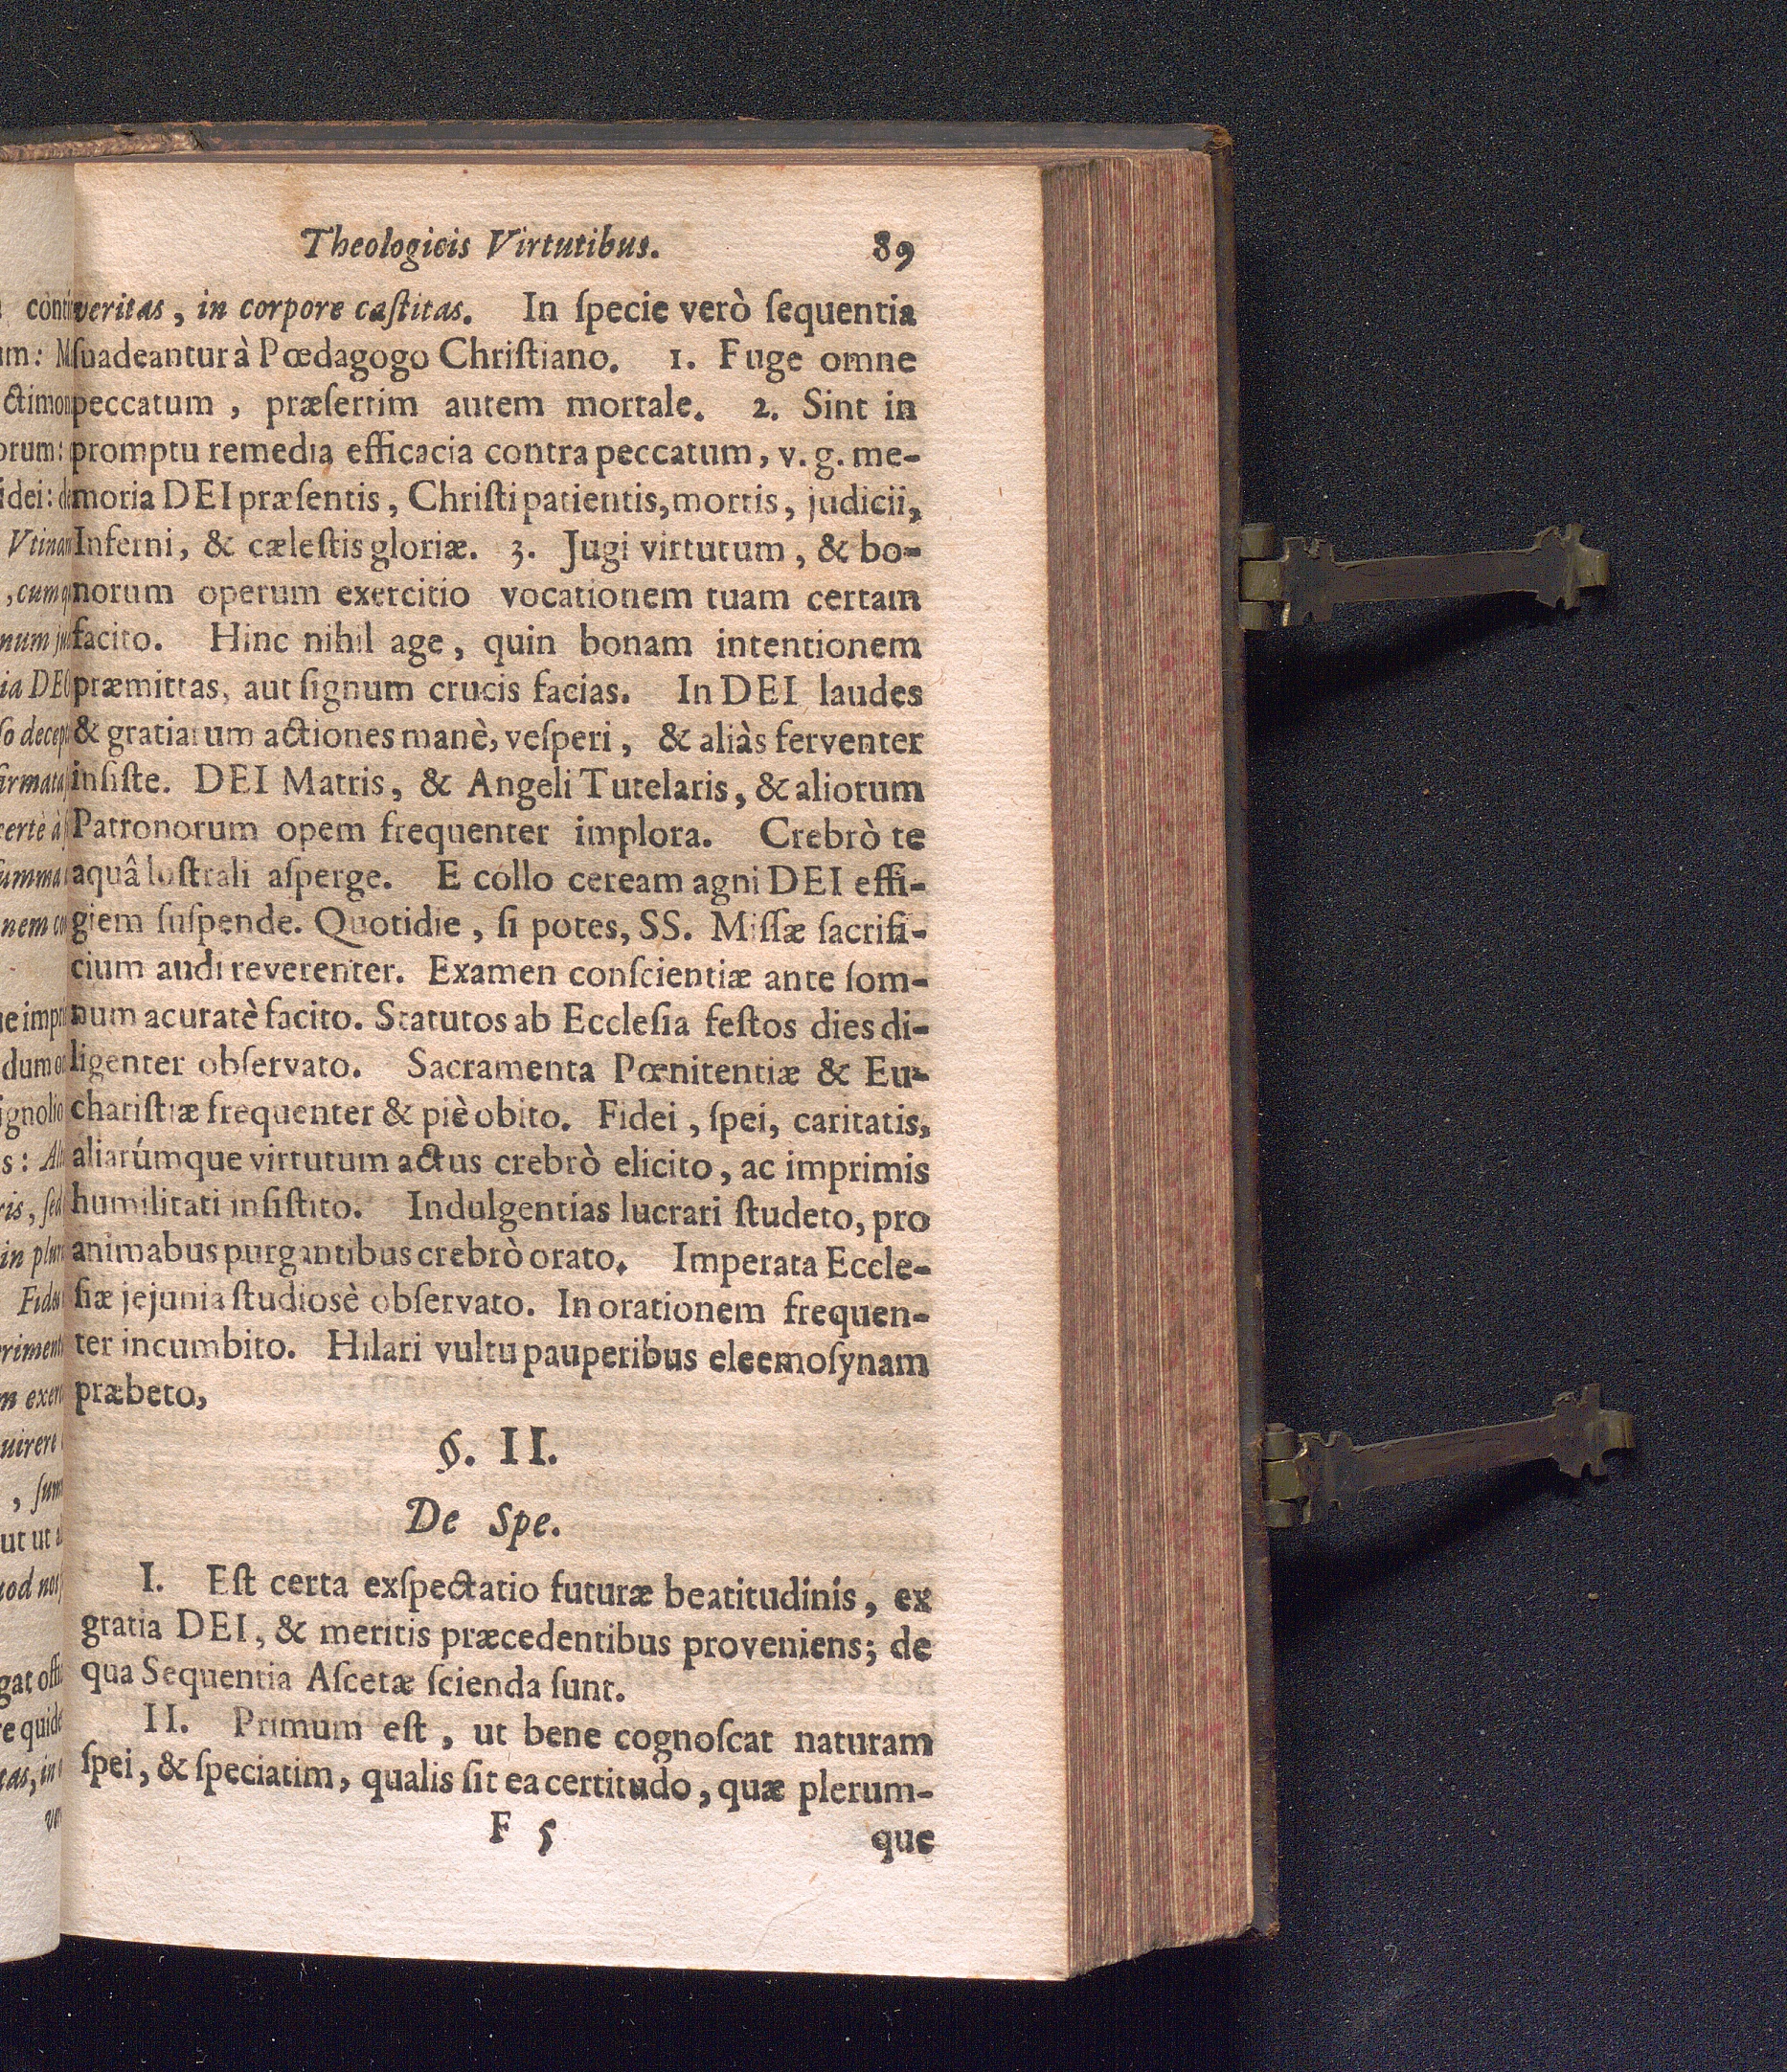 Theologicis Virtutibus. 89
veritas, in corpore caſtitas. In ſpecie verò ſequentia
ſuadeantur à Pœdagogo Chriſtiano. 1. Fuge omne
peccatum, præſertim autem mortale. 2. Sint in
promptu remedia efficacia contra peccatum, v. g. me-
moria DEI præſentis, Chriſti patientis, mortis, judicii,
Inferni, & cæleſtis gloriæ. 3. Jugi virtutum, & bo-
norum operum exercitio vocationem tuam certam
facito. Hinc nihil age, quin bonam intentionem
præmittas, aut ſignum crucis facias. In DEI laudes
& gratiarum actiones manè, veſperi, & aliàs ferventer
inſiſte. DEI Matris, & Angeli Tutelaris, & aliorum
Patronorum opem frequenter implora. Crebrò te
aquâ luſtrali aſperge. E collo ceream agni DEI effi-
giem ſuſpende. Quotidie, ſi potes, SS. Miſſæ ſacrifi-
cium audi reverenter. Examen conſcientiæ ante ſom-
num acuratè facito. Statutos ab Eccleſia feſtos dies di-
ligenter obſervato. Sacramenta Pœnitentiæ & Eu-
chariſtiæ frequenter & piè obito. Fidei, ſpei, caritatis,
aliarúmque virtutum actus crebrò elicito, ac imprimis
humilitati inſiſtito. Indulgentias lucrari ſtudeto, pro
animabus purgantibus crebrò orato. Imperata Eccle-
ſiæ jejunia ſtudiosè obſervato. In orationem frequen-
ter incumbito. Hilari vultu pauperibus eleemoſynam
præbeto,
§. II.
De Spe.
I. Eſt certa exſpectatio futuræ beatitudinis, ex
gratia DEI, & meritis præcedentibus proveniens; de
qua Sequentia Aſcetæ ſcienda ſunt.
II. Primum eſt, ut bene cognoſcat naturam
ſpei, & ſpeciatim, qualis ſit ea certitudo, quæ plerum-
F 5 que